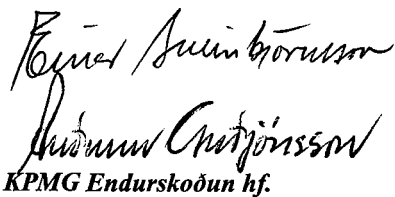 Einar Sveinbjörnsson
Auðunn Guðjónsson
KPMG Endurskoðun hf.